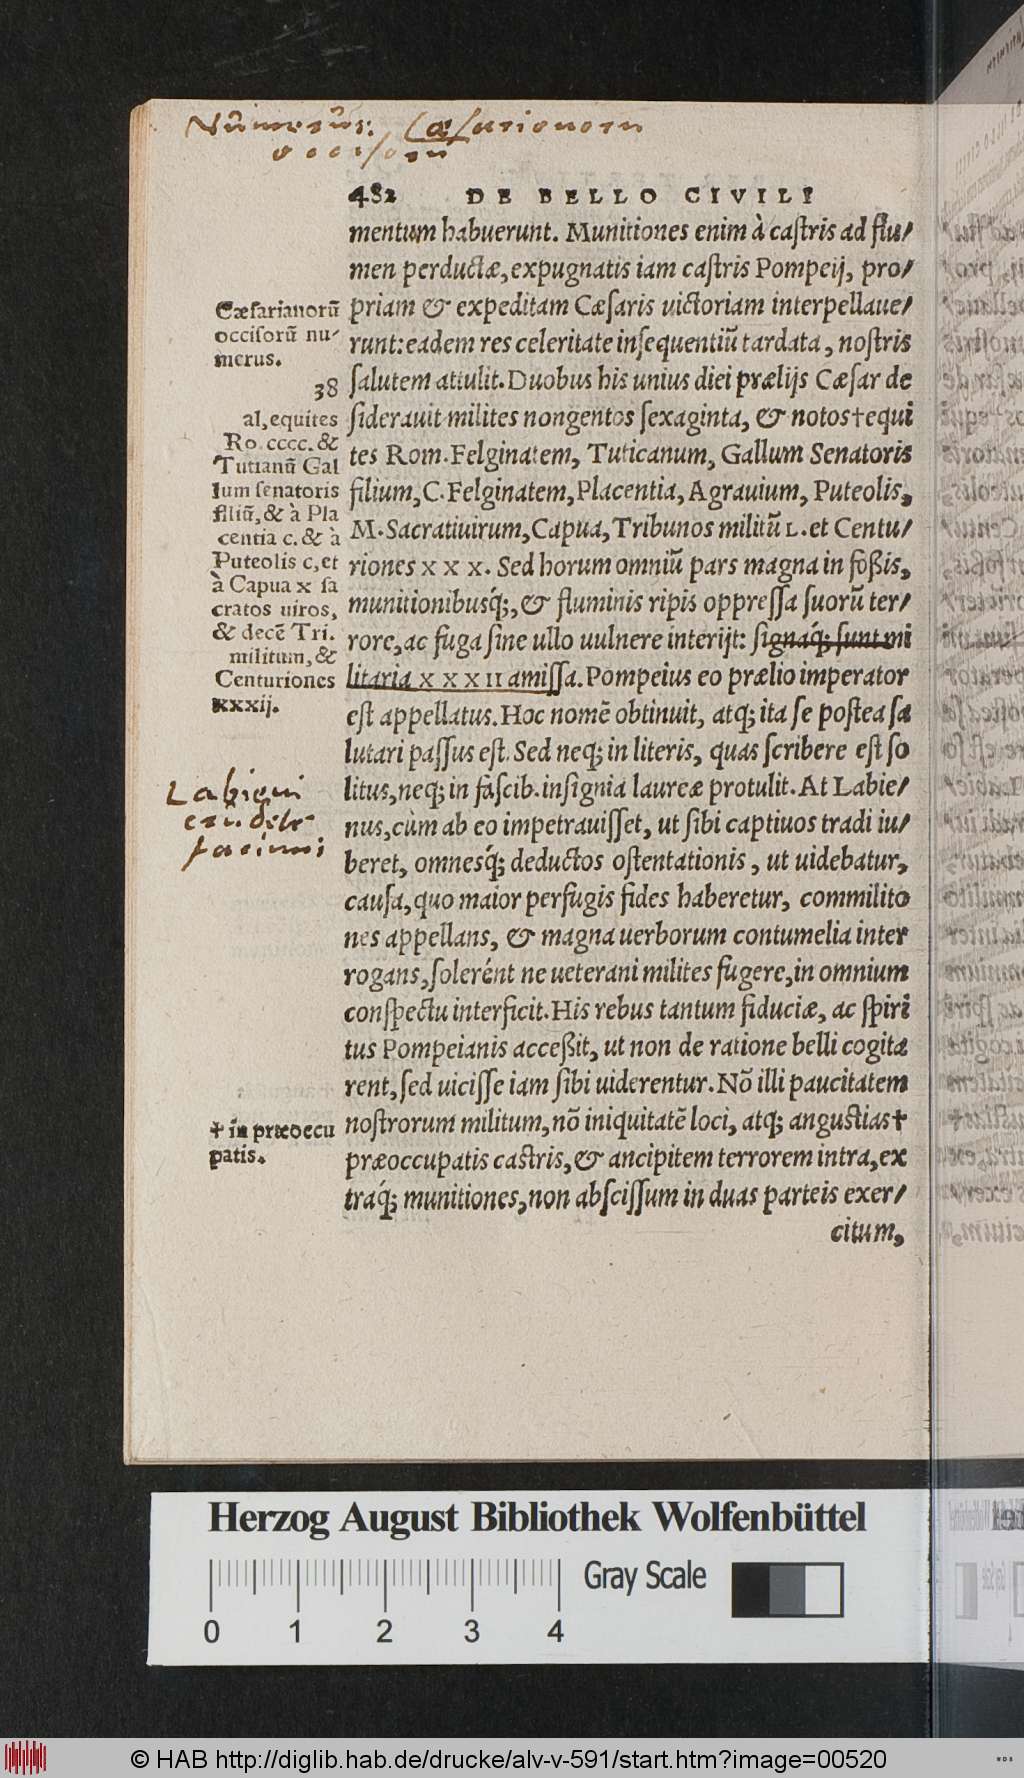 Nũmerũs: Cæsarianorū
occisorū
482 DE BELLO CIVILI
mentum habuerunt. Munitiones enim à castris ad flu/
men perductæ, expugnatis iam castris Pompeij, pro/
priam & expeditam Cæsaris uictoriam interpellaue/
runt: eadem res celeritate insequentiū tardata, nostris
salutem attulit. Duobus his unius diei prælijs Cæsar de
siderauit milites nongentos sexaginta, & notos † equi
tes Rom. Felginatem, Tuticanum, Gallum Senatoris
filium, C. Felginatem, Placentia, Agrauium, Puteolis,
M. Sacratiuirum, Capua, Tribunos militū L. et Centu/
riones XXX. Sed horum omniū pars magna in foßis,
munitionibusq́;, & fluminis ripis oppressa suorū ter/
rore, ac fuga sine ullo uulnere interijt: signaq́; sunt mi
litaria XXXII amissa. Pompeius eo prælio imperator
est appellatus. Hoc nomē obtinuit, atq; ita se postea sa
lutari passus est. Sed neq; in literis, quas scribere est so
litus, neq; in fascib. insignia laureæ protulit. At Labie/
nus, cùm ab eo impetrauisset, ut sibi captiuos tradi iu/
beret, omnesq́; deductos ostentationis, ut uidebatur,
causa, quo maior perfugis fides haberetur, commilito
nes appellans, & magna uerborum contumelia inter
rogans, solerént ne ueterani milites fugere, in omnium
conspectu interficit. His rebus tantum fiduciæ, ac spiri
tus Pompeianis acceßit, ut non de ratione belli cogita
rent, sed uicisse iam sibi uiderentur. Nō illi paucitatem
nostrorum militum, nō iniquitatē loci, atq; angustias †
præoccupatis castris, & ancipitem terrorem intra, ex
traq́; munitiones, non abscissum in duas parteis exer/
citum,
Cæsarianorū
occisorū nu-
merus.
38
al, equites
Ro. cccc. &
Tutianū Gal
lum senatoris
filiū, & à Pla
centia c. & à
Puteolis c, et
à Capua x sa
cratos uiros,
& decē Tri.
militum, &
Centuriones
xxxij.
Labieni
crudele
facinus
† in præoccu
patis.
Herzog August Bibliothek Wolfenbüttel
Gray Scale
0 1 2 3 4
© HAB http://diglib.hab.de/drucke/alv-v-591/start.htm?image=00520